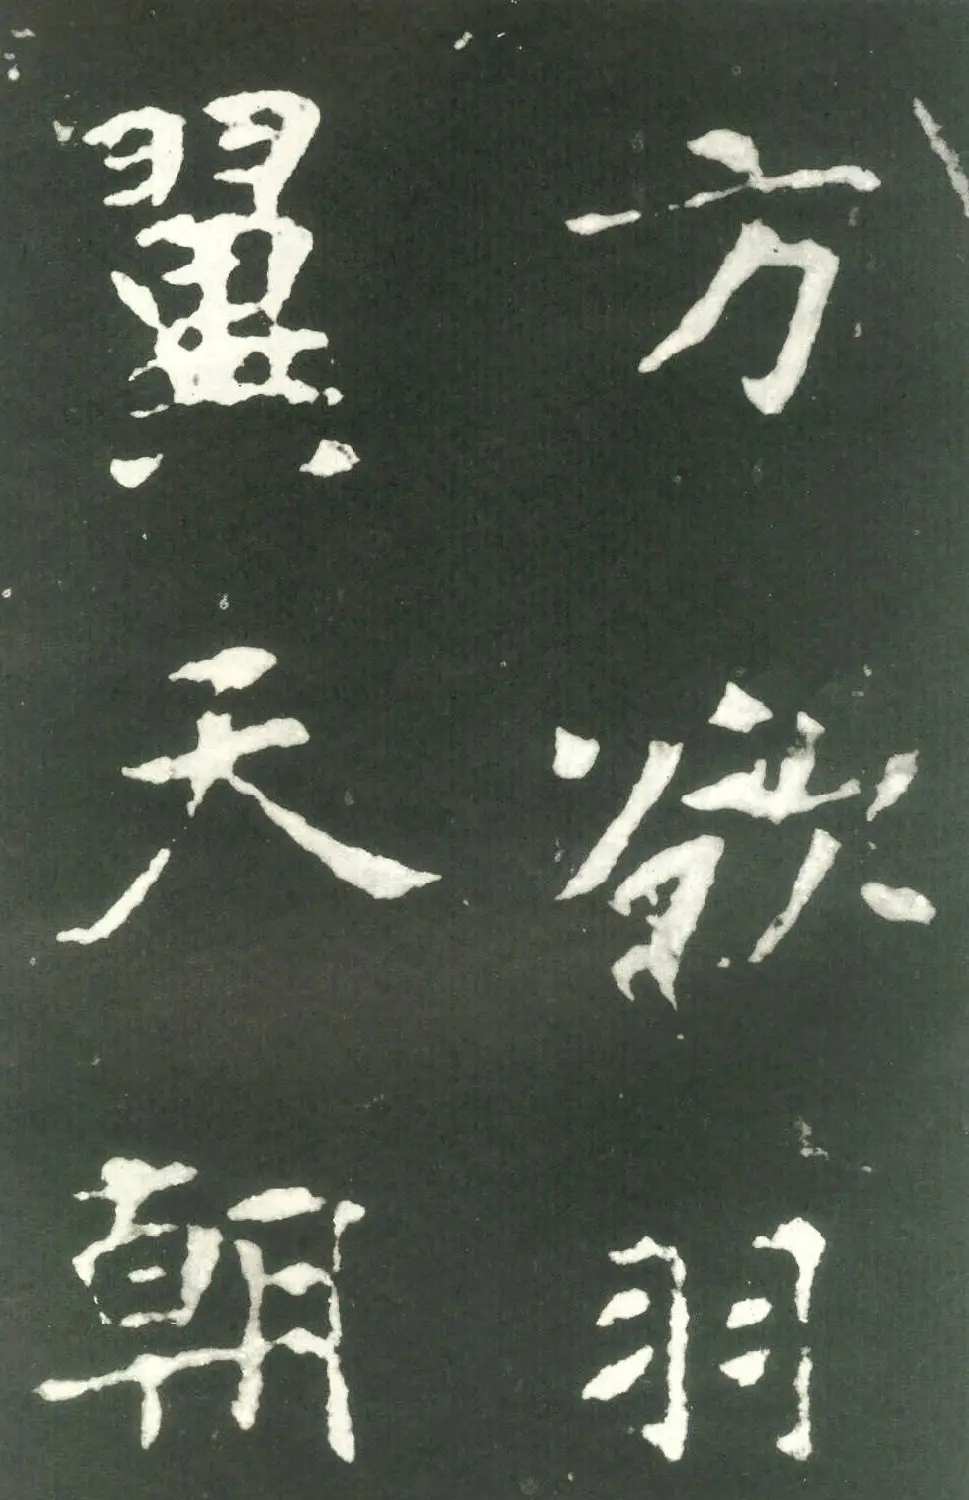 方欲羽
翼天朝